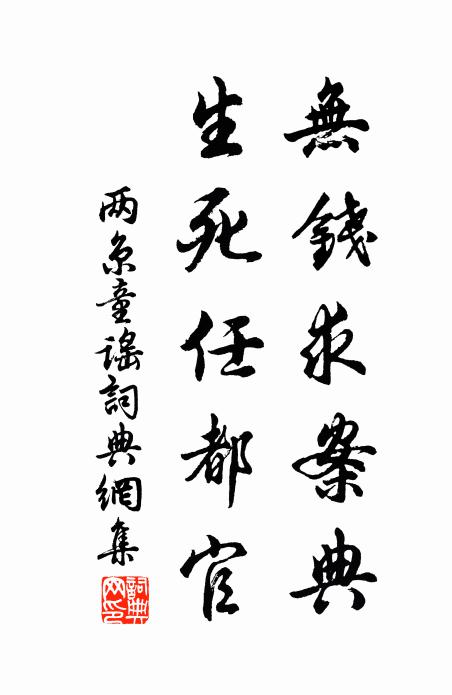 無錢求案典
生死任都官
两京童謠詞典網集
詞典網印